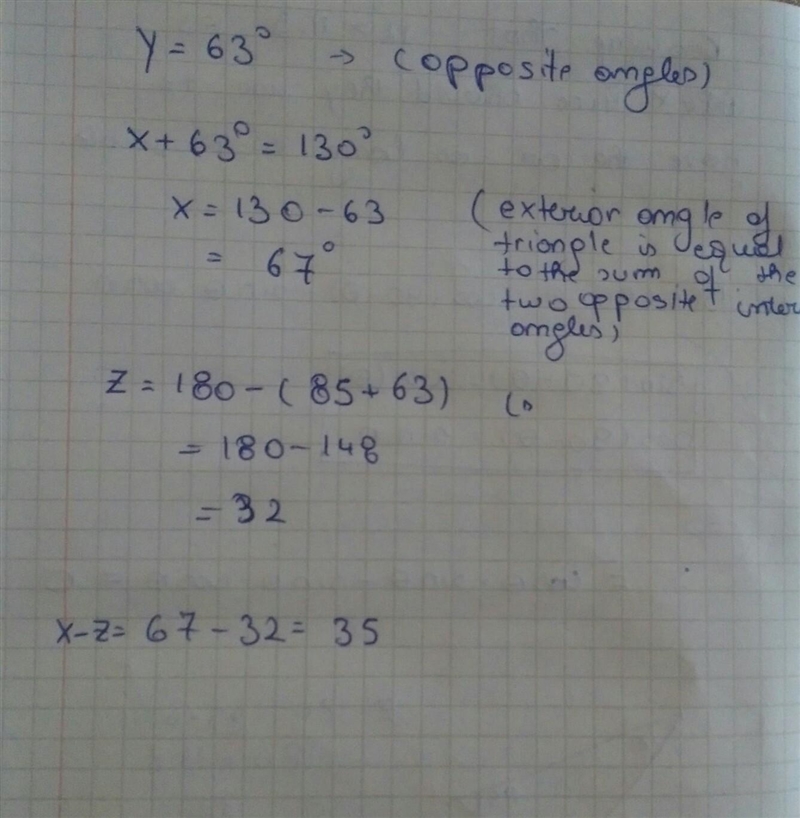 Y = 63° → (opposite angles)
x + 63° = 130°
x = 130 - 63 (exterior angle of
triangle is equal
= 67°
to the sum of the
two opposite inter
angles)
Z = 180 - (85 + 63) (
= 180 - 148
= 32
x - z = 67 - 32 = 35